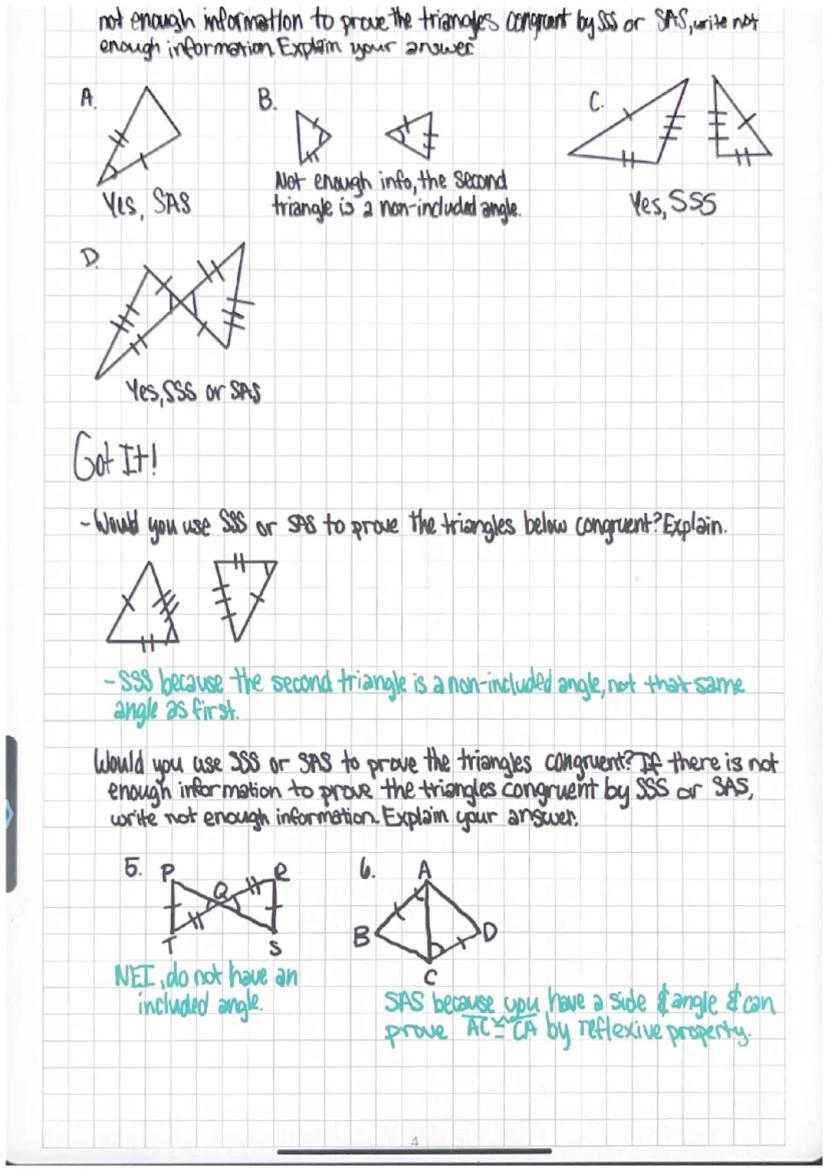 not enough information to prove the triangles congruent by SSS or SAS, write not
enough information. Explain your answer
A.
B.
C.
Yes, SAS
Not enough info, the second
triangle is a non-included angle.
Yes, SSS
D.
Yes, SSS or SAS
Got It!
- Would you use SSS or SAS to prove the triangles below congruent? Explain.
- SSS because the second triangle is a non-included angle, not that same
angle as first.
Would you use SSS or SAS to prove the triangles congruent? If there is not
enough information to prove the triangles congruent by SSS or SAS,
write not enough information. Explain your answer.
5. P Q R
T S
NEI, do not have an
included angle.
6. A
B D
C
SAS because you have a side & angle & can
prove AC ≅ CA by reflexive property.
4